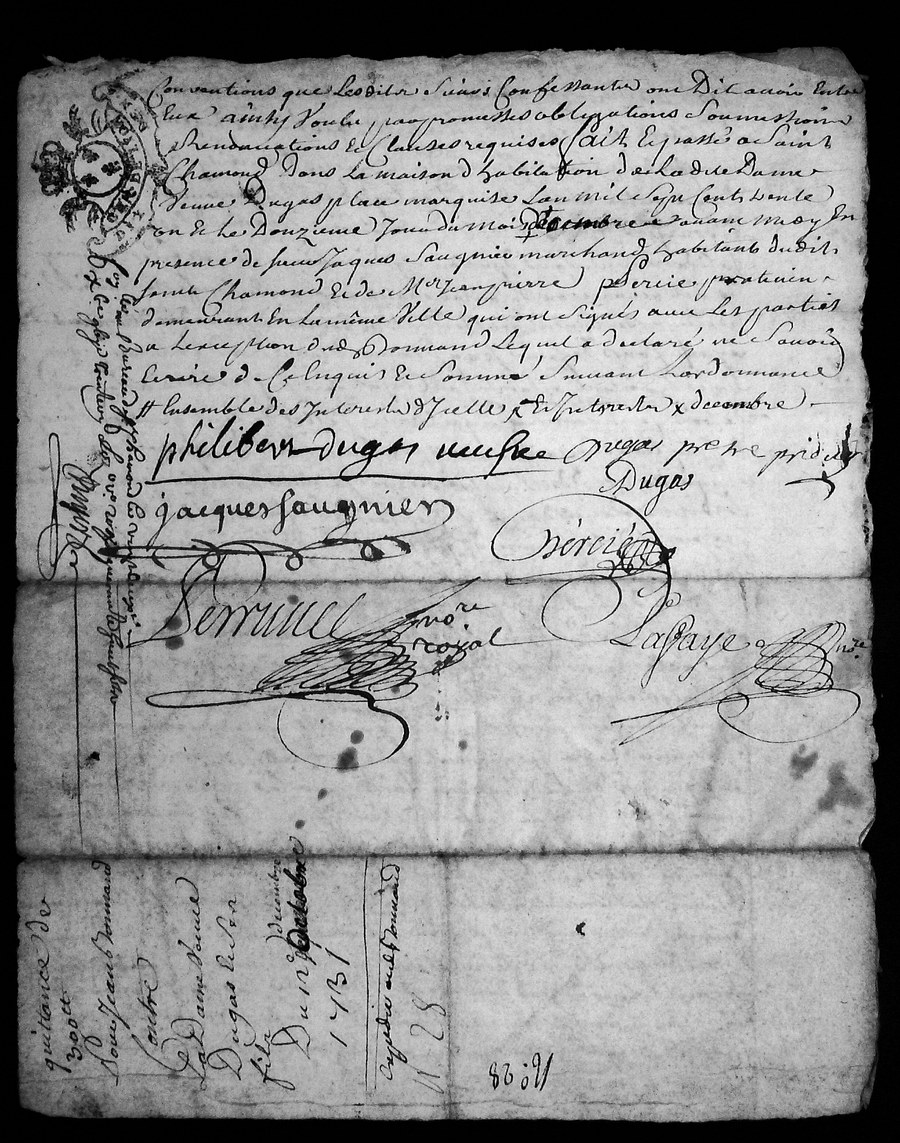 Conventions que Lesdits Sieurs Confessants ont Dit avoir Entre
Eux ainsy Voulu par promesses obligations Soumissions
Renonciations Et Clauses requises fait Et passé a Saint
Chamond dans La maison d'habitation de Laditte Dame
Veuve Dugas place marquise L'an mil Sept Cents trente
un Et Le Douzieme Jour du Mois Decembre avant midy En
presence de sieur Jaques Saugnier marchand habitant dudit
saint Chamond Et de Mre Jean pierre Percié praticien
demeurant En La même Ville qui ont Signés avec Les parties
a L'exception dud Bonnand Lequel a declaré ne Savoir
Ecrire de Ce Enquis Et Sommé Suivant L'ordonnance
# Ensemble des Interests d'Icelle x Et Interests x decembre
philibert dugas Dugas prestre
Dugas
jacques saugnier
Percié
nore
royal
Lafaye nore
quittance de
300tt
Pour Jean Bonnand
Contre
La Dame Veuve
Dugas Et ses
fils
Du 12e octobre decembre
1731
Expedié aud Bonnand
N 28
No. 28